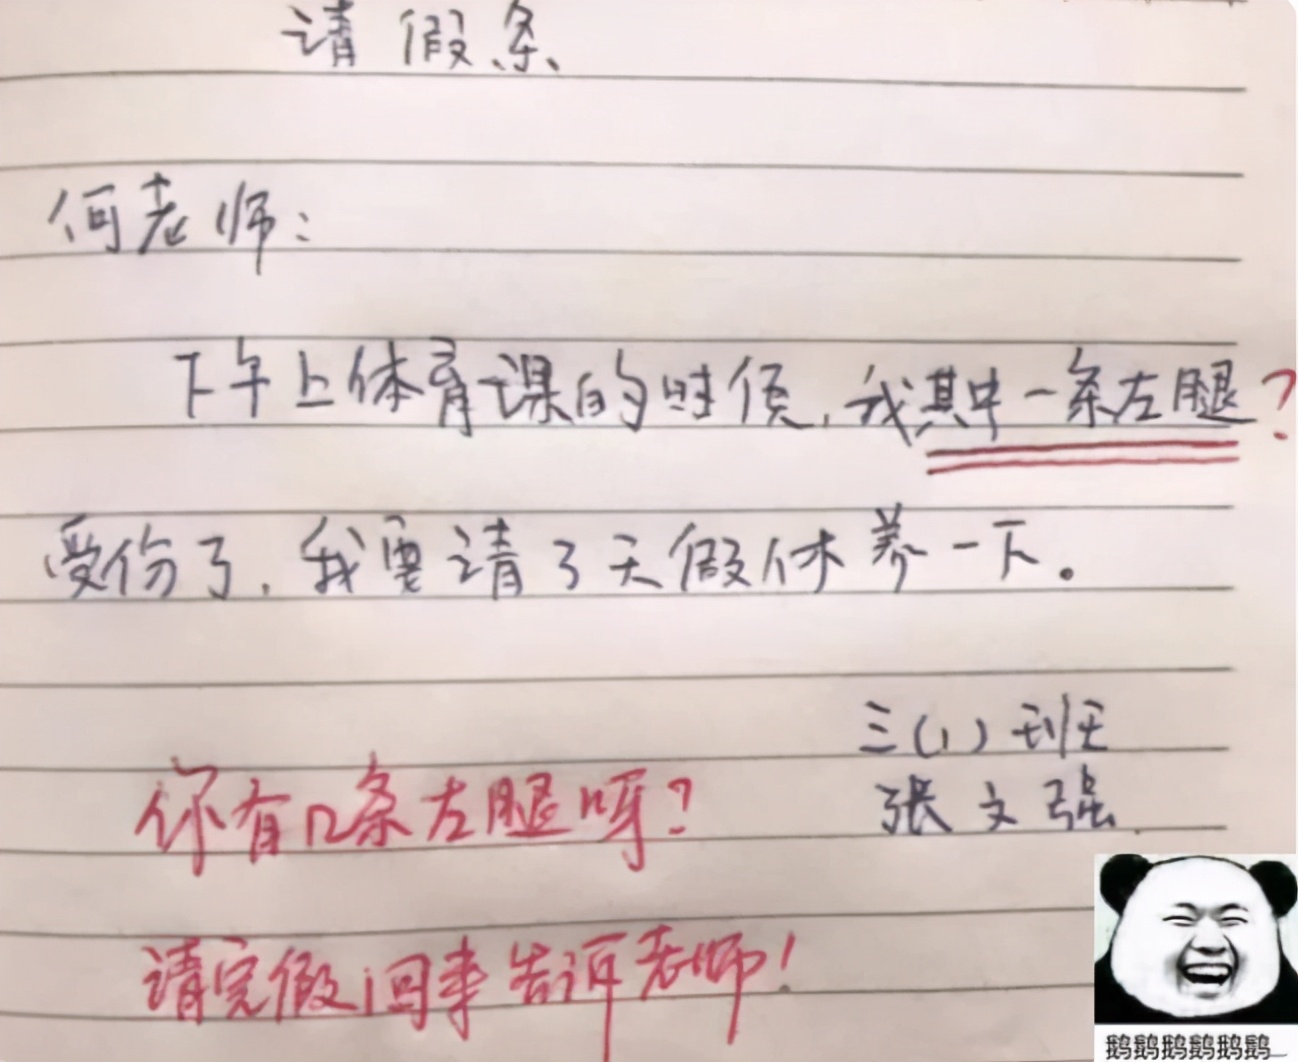 请假条
何老师：
下午上体育课的时候,我其中一条左腿?
受伤了,我要请3天假休养一下。
三(1)班
张文强
你有几条左腿呀?
请完假回来告诉老师!
鹅鹅鹅鹅鹅鹅